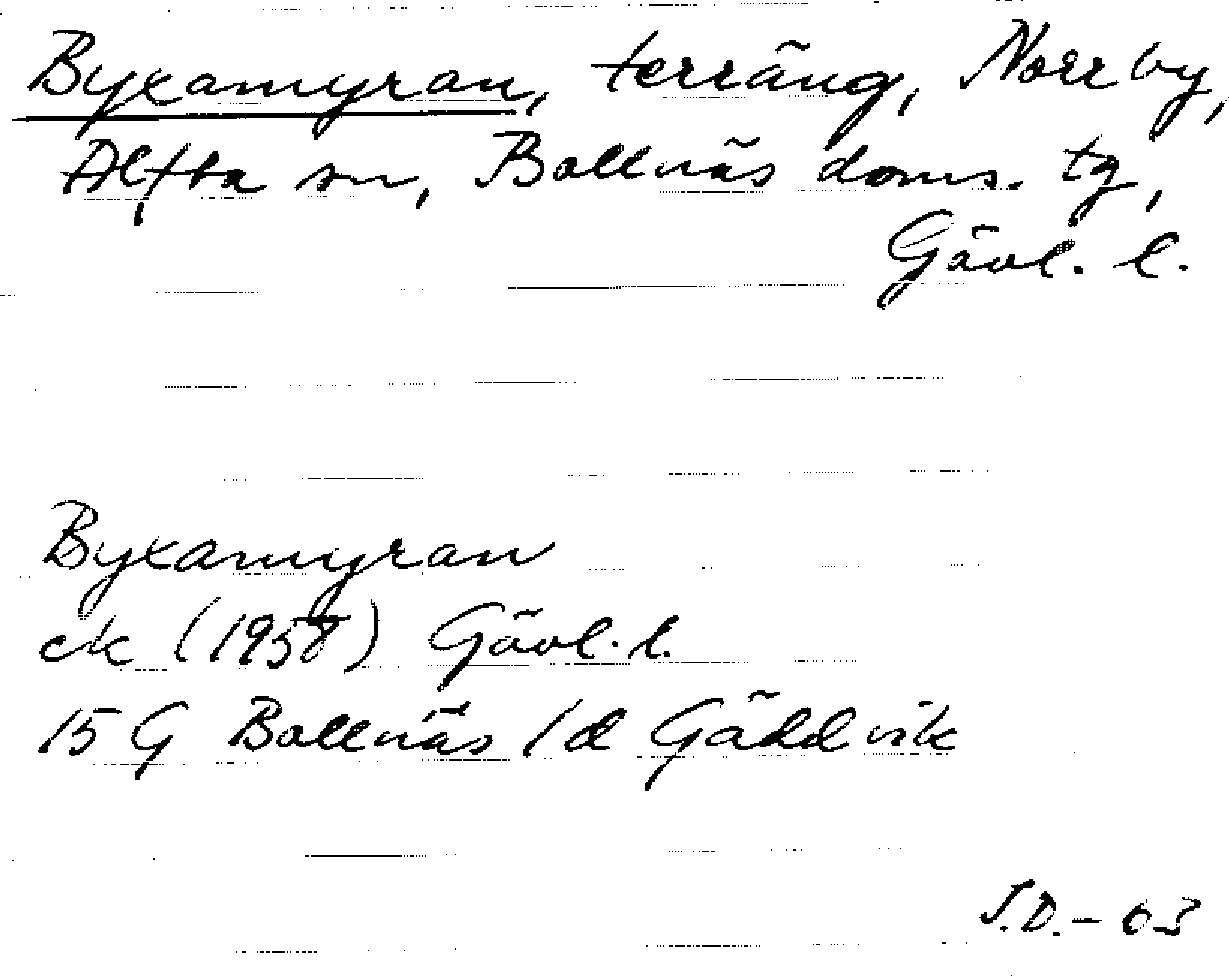 Byxamyran, terräng, Norrby,
Alfta sn, Bollnäs doms. tg,
Gävl. l.
Byxamyran
ek (1958) Gävl. l.
15 G Bollnäs 1d Gäddvik
J.D. - 63